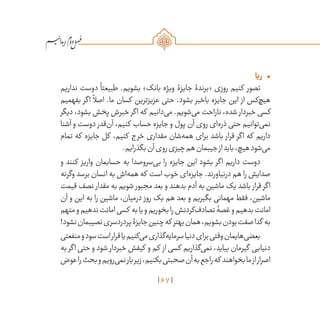 فصل دوم
• ریا
تصور کنیم روزی «برندهٔ جایزهٔ ویژه بانک» بشویم. طبیعتاً دوست نداریم
هیچ‌کس از این جایزه باخبر بشود. حتی عزیزترین کسان ما. اصلاً اگر بفهمیم
کسی خبردار شده، ناراحت می‌شویم. می‌دانیم که اگر خبرش پخش بشود، دیگر
نمی‌توانیم حتی ذره‌ای روی آن پول و جایزه حساب کنیم، آن‌قدر دوست و آشنا
داریم که اگر قرار باشد برای همه‌شان مقداری خرج کنیم، کل جایزه که تمام
می‌شود هیچ، باید از جیبمان هم چیزی روی آن بگذاریم.
دوست داریم اگر بشود این جایزه را بی‌سروصدا به حسابمان واریز کنند و
صدایش را هم درنیاورند. جایزه‌ای خوب است که همه‌اش به انسان برسد وگرنه
اگر قرار باشد یک ماشین به آدم بدهند و بعد مجبور شویم به مقدار نصف قیمت
ماشین، فقط مهمانی بگیریم و بعد هم یک روز درمیان، ماشین را به این و آن
امانت بدهیم و غصهٔ تصادف‌کردنش را بخوریم و یا به کسی امانت ندهیم و متهم
به گدا صفت بودن بشویم، همان بهتر که چنین جایزهٔ پردردسری نصیبمان نشود!
بعضی‌هایمان وقتی برای دنیا سرمایه‌گذاری می‌کنیم یا قرار است سود و منفعتی
دنیایی گیرمان بیاید، نمی‌گذاریم کسی از کم و کیفش خبردار شود و حتی اگر به
اصرار از ما بخواهند که راجع به آن صحبتی بکنیم، زیر بار نمی‌رویم و بحث را عوض
|۶۷|